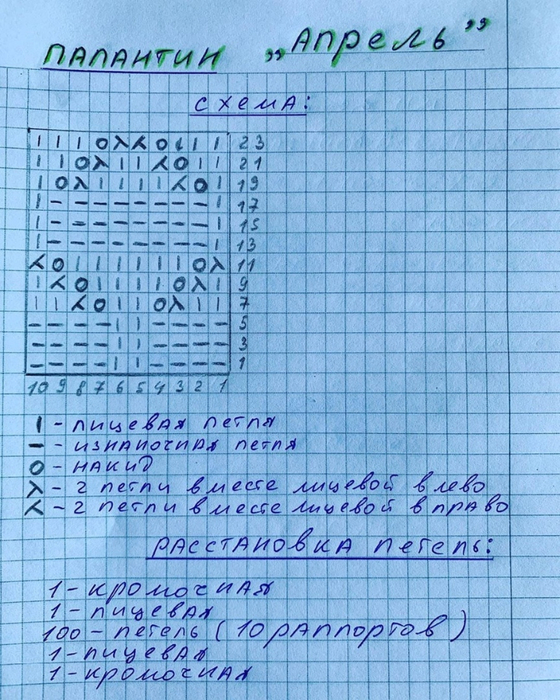 ПАЛАНТИН „Апрель”
СХЕМА:
| | | O λ ⋌ O | | | 23
| | O λ | | ⋌ O | | 21
| O λ | | | | ⋌ O | 19
| – – – – – – – – | 17
| – – – – – – – – | 15
| – – – – – – – – | 13
⋌ O | | | | | | O λ 11
| ⋌ O | | | | O λ | 9
| | ⋌ O | | O λ | | 7
– – – – | | – – – – 5
– – – – | | – – – – 3
– – – – | | – – – – 1
10 9 8 7 6 5 4 3 2 1
| - лицевая петля
– - изнаночная петля
O - накид
λ - 2 петли вместе лицевой влево
⋌ - 2 петли вместе лицевой вправо
РАССТАНОВКА петель:
1 - кромочная
1 - лицевая
100 - петель (10 раппортов)
1 - лицевая
1 - кромочная